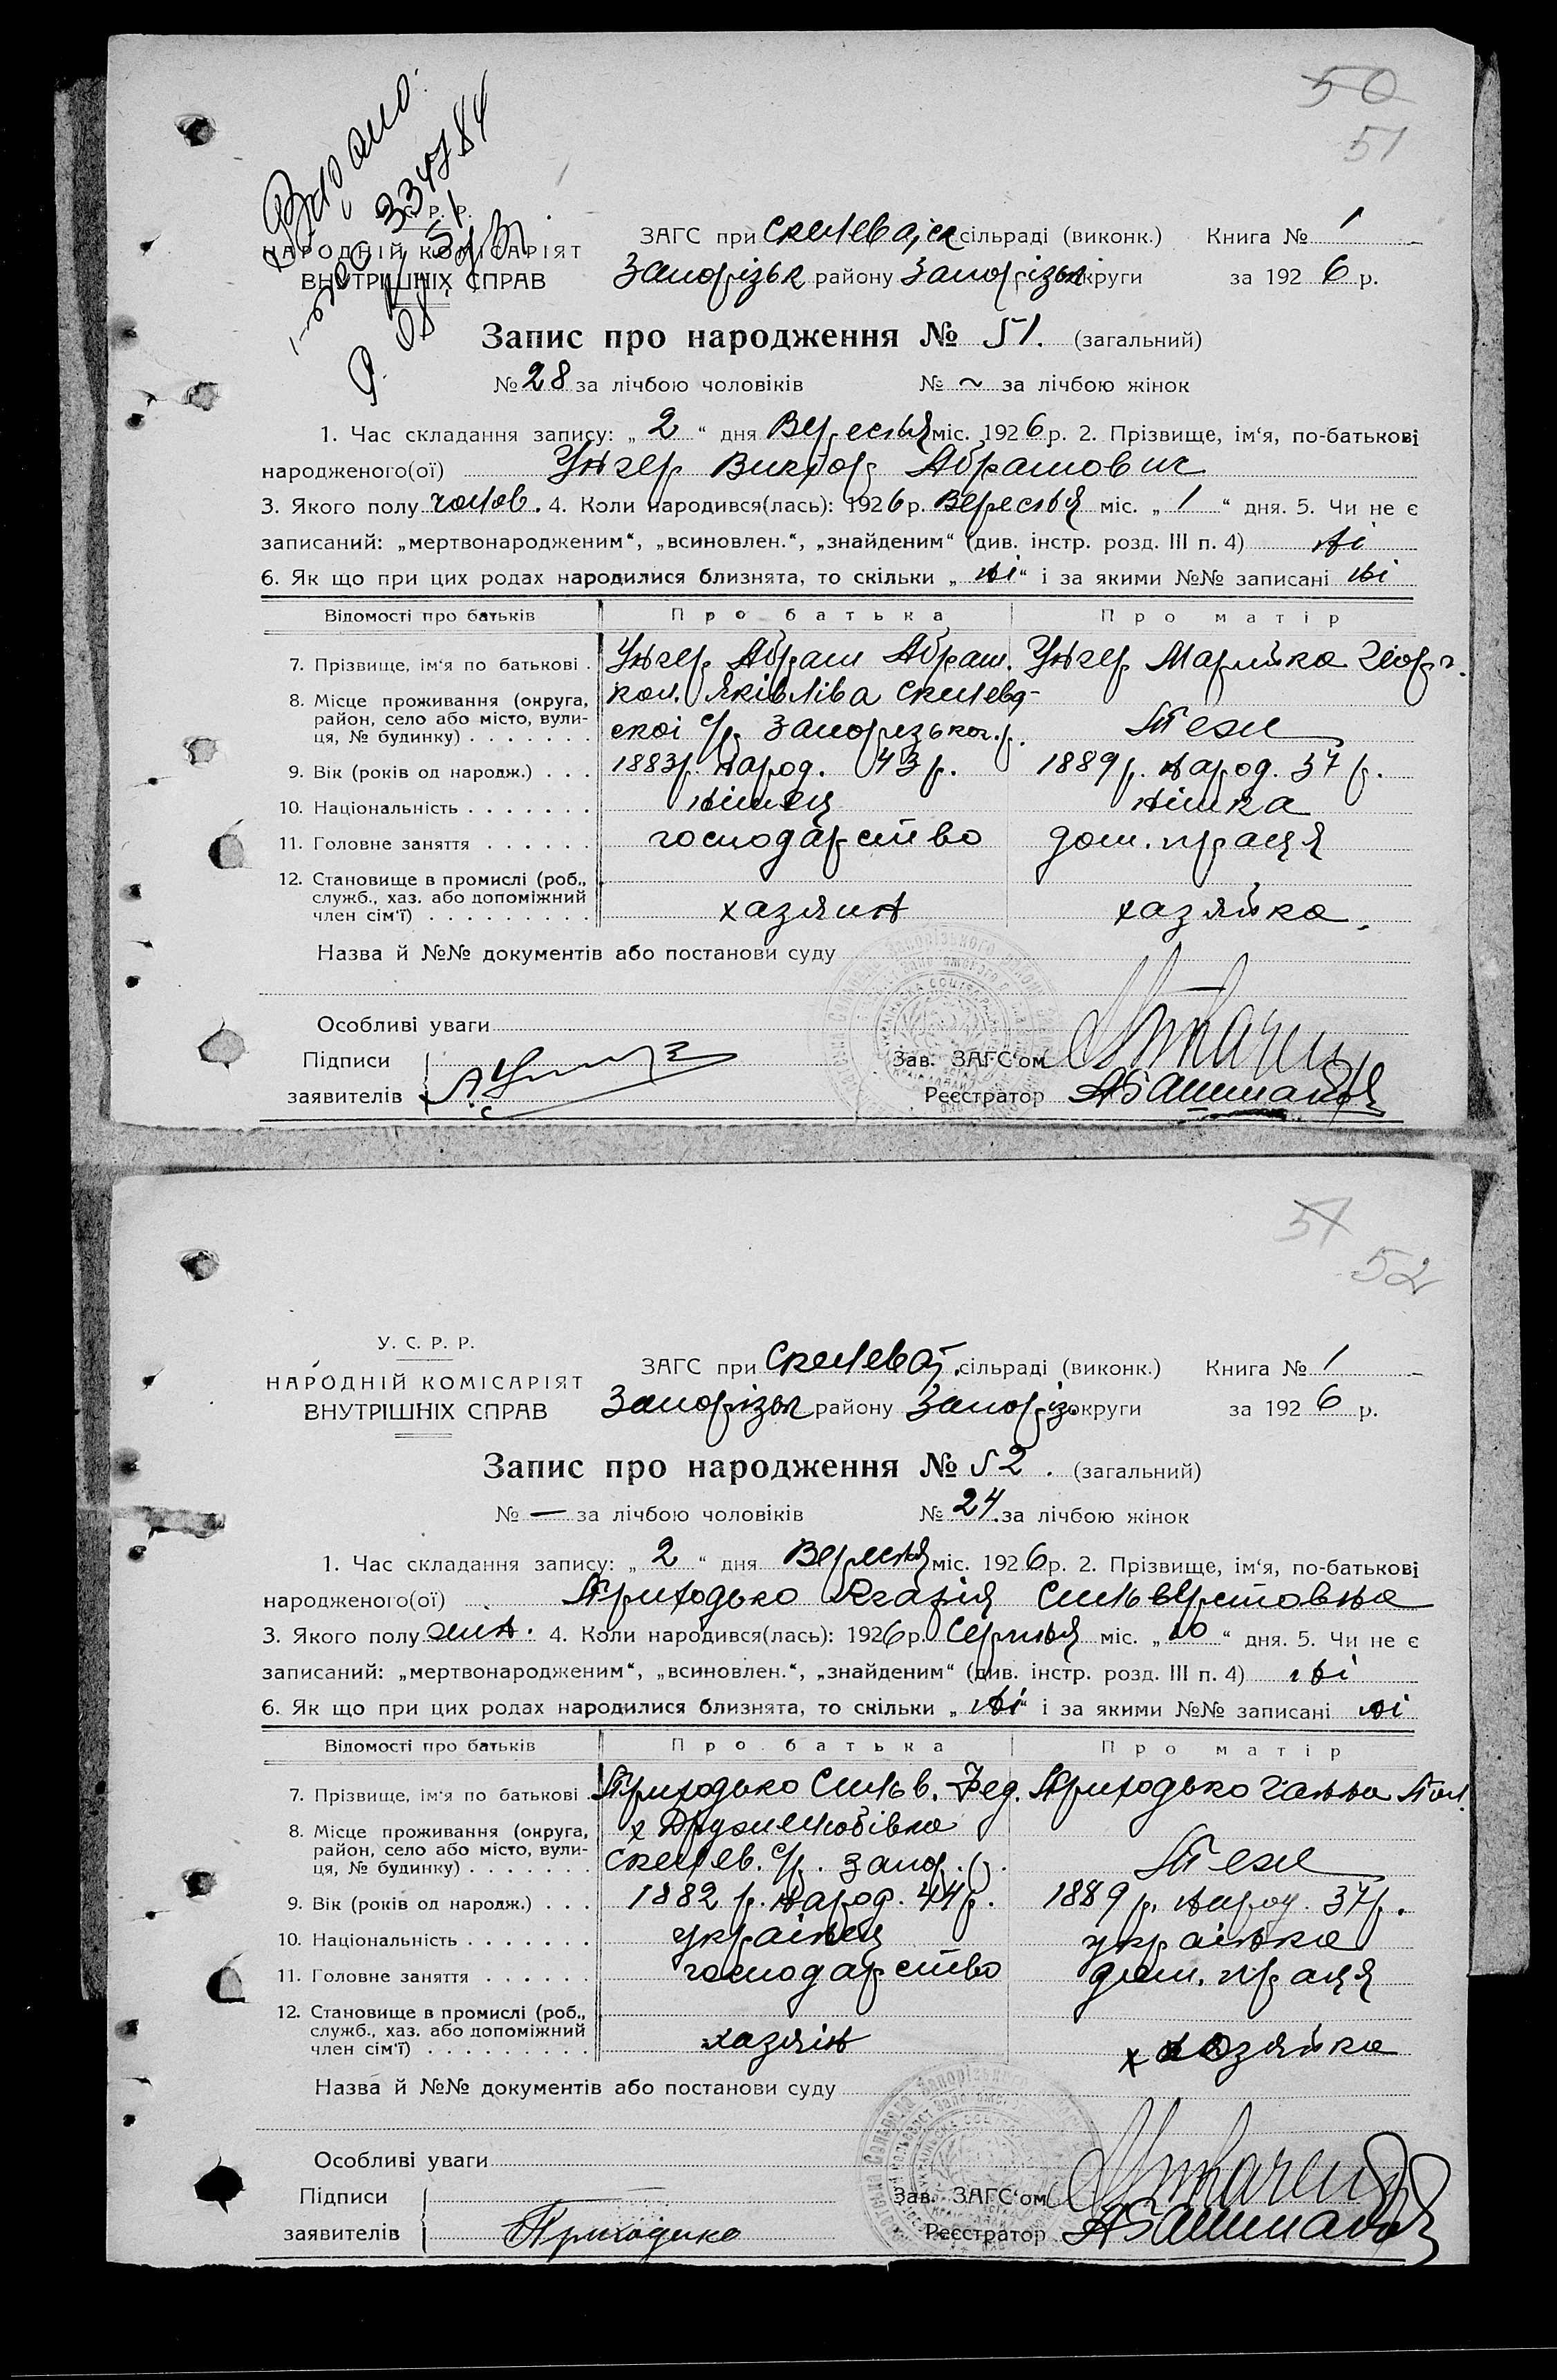 50
51
Видано:
334784
Р. Р.
НАРОДНІЙ КОМІСАРІЯТ
ВНУТРІШНІХ СПРАВ
ЗАГС при Скелеват.ск сільраді (виконк.) Книга № 1
Запорізьк району Запорізьк округи за 1926 р.
Запис про народження № 51. (загальний)
№ 28 за лічбою чоловіків № ~ за лічбою жінок
1. Час складання запису: „ 2 “ дня Вересня міс. 1926 р. 2. Прізвище, ім‘я, по-батькові
народженого(ої) Унгер Виктор Абрамович
3. Якого полу чолов. 4. Коли народився(лась): 1926 р. Вересня міс. „ 1 “ дня. 5. Чи не є
записаний: „мертвонародженим“, „всиновлен.“, „знайденим“ (див. інстр. розд. III п. 4) ні
6. Як що при цих родах народилися близнята, то скільки „ ні “ і за якими №№ записані ні
Відомості про батьків Про батька Про матір
7. Прізвище, ім‘я по батькові . Унгер Абрам Абрам. Унгер Марийка Георг.
8. Місце проживання (округа, район, село або місто, вулиця, № будинку) . . . . . . . кол. Яківліва Скелева-
скоі с/р. Запорізьког.р. Теж
9. Вік (років од народж.) . . . 1883р. народ. 43 р. 1889 р. народ. 37 р.
10. Національність . . . . . . . німець німка
11. Головне заняття . . . . . . господарство дом. праця
12. Становище в промислі (роб.,
служб., хаз. або допоміжний
член сім‘ї) . . . . . . . . . хазяин хазяйка
Назва й №№ документів або постанови суду
Особливі уваги
Підписи Зав. ЗАГС‘ом
заявителів Реєстратор
57
52
У. С. Р. Р.
НАРОДНІЙ КОМІСАРІЯТ
ВНУТРІШНІХ СПРАВ
ЗАГС при Скелеват. сільраді (виконк.) Книга № 1
Запорізьк району Запоріз. округи за 1926 р.
Запис про народження № 52. (загальний)
№ — за лічбою чоловіків № 24. за лічбою жінок
1. Час складання запису: „ 2 “ дня Вересня міс. 1926 р. 2. Прізвище, ім‘я, по-батькові
народженого(ої) Приходько Ягафія Сильверстовна
3. Якого полу жін. 4. Коли народився(лась): 1926 р. Серпня міс. „ 10 “ дня. 5. Чи не є
записаний: „мертвонародженим“, „всиновлен.“, „знайденим“ (див. інстр. розд. III п. 4) ні
6. Як що при цих родах народилися близнята, то скільки „ ні “ і за якими №№ записані ні
Відомості про батьків Про батька Про матір
7. Прізвище, ім‘я по батькові . Приходько Сильв. Фед. Приходько Ганна Пол.
8. Місце проживання (округа, район, село або місто, вулиця, № будинку) . . . . . . . х Дружелюбівка
Скелев. с/р. Запор. р. Теж
9. Вік (років од народж.) . . . 1882 р. народ. 44р. 1889 р. народ. 37р.
10. Національність . . . . . . . українець українка
11. Головне заняття . . . . . . господарство дом. праця
12. Становище в промислі (роб.,
служб., хаз. або допоміжний
член сім‘ї) . . . . . . . . . хазяін хазяйка
Назва й №№ документів або постанови суду
Особливі уваги
Підписи Зав. ЗАГС‘ом
заявителів Приходько Реєстратор